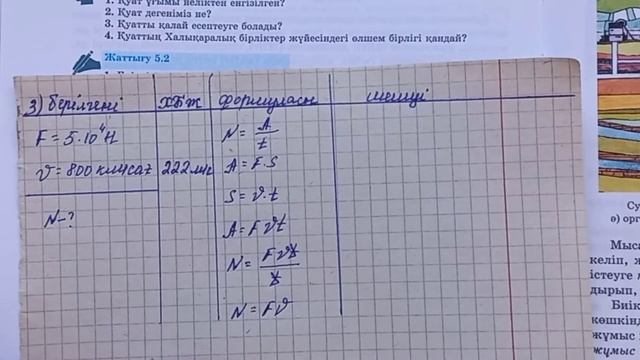 1. Қуат ұғымы неліктен енгізілген?
2. Қуат дегеніміз не?
3. Қуатты қалай есептеуге болады?
4. Қуаттың Халықаралық бірліктер жүйесіндегі өлшем бірлігі қандай?
Жаттығу 5.2
3) Берілгені ХБЖ Формуласы шешуі
F = 5·10⁴ H
ϑ = 800 км/сағ 222 м/с
N-?
N = A/t
A = F·S
S = ϑ·t
A = Fϑt
N = Fϑt/t
N = Fϑ
Су
ә) орг
Мыса
келіп, ж
істеуге
дырып,
Биік
көшкінд
жұмыс
жұмыс